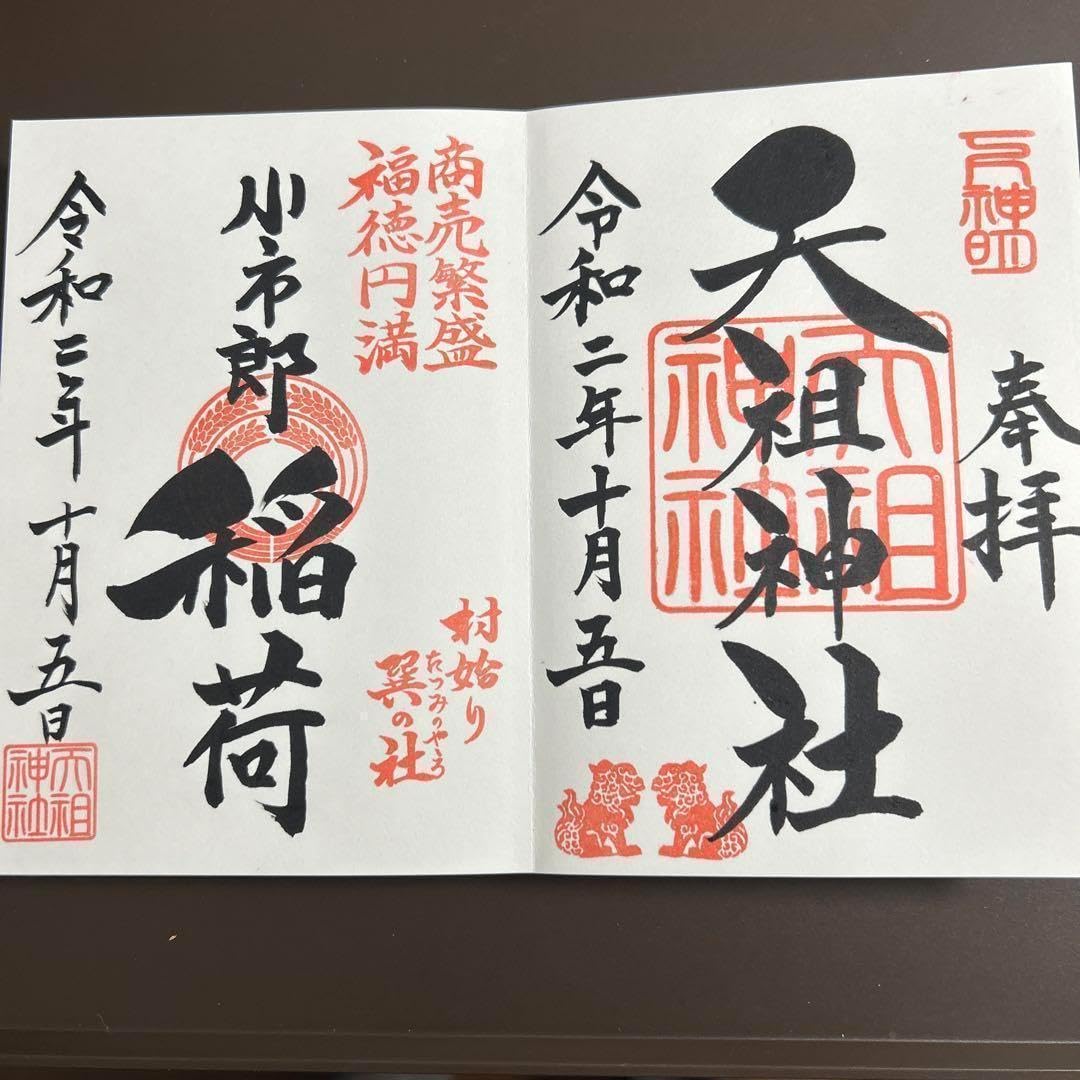 奉拝
天祖神社
天祖神社
令和二年十月五日
商売繁盛
福徳円満
村始り
巽の社
たつみのやしろ
小市郎稲荷
令和二年十月五日
天祖神社